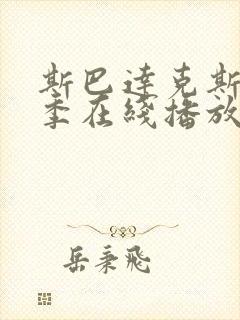 斯巴达克斯
季在线播放
岳秉飛